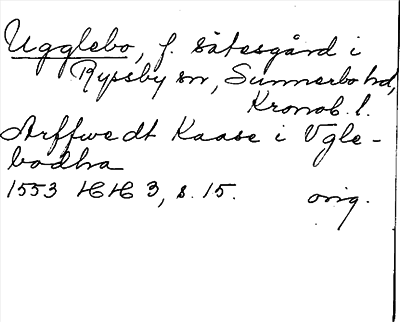 Ugglebo, f. sätesgård i
Ryssby sn, Sunnerbo hd,
Kronob. l.
Arffwedt Kaase i Vgle-
bodha
1553 HH 3, s. 15. orig.